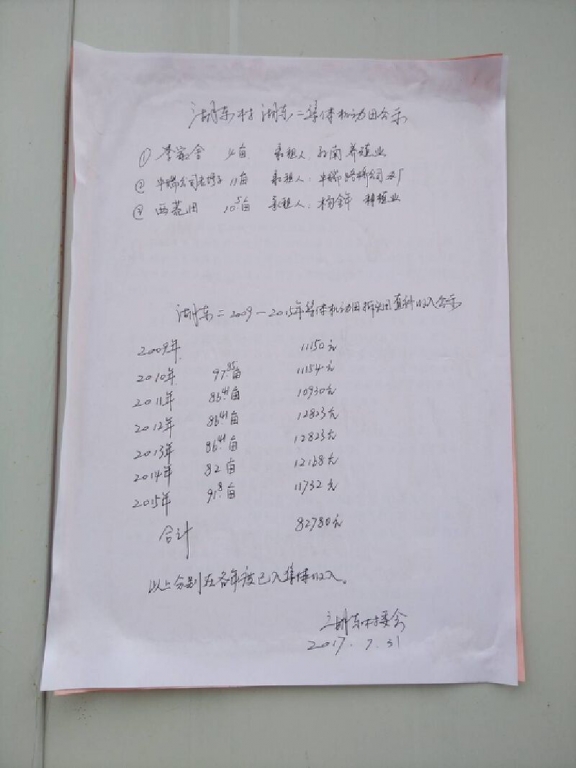 湖东村湖东二集体机动田公示
① 李家舍 4亩 承租人: 养殖业
② 11亩 承租人:
③ 西荒田 10.5亩 承租人: 杨 种植业
湖东二2009—2015年集体机动田 收入公示
2009年 11150元
2010年 97.85亩 11154元
2011年 83.41亩 10930元
2012年 83.41亩 12823元
2013年 86.41亩 12823元
2014年 82亩 12168元
2015年 91.8亩 11732元
合计 82780元
以上分别在各年度已入集体收入。
湖东村委会
2017.7.31